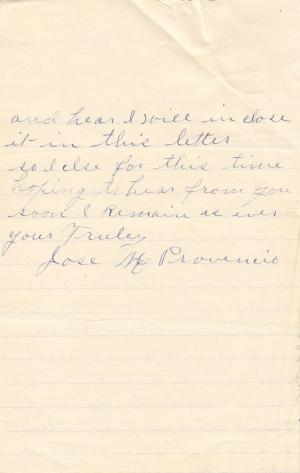 and hear I will in close
it in this letter
so I else for this time
hoping to hear from you
soon I Remain as ever
your Truley
Jose M Provencio